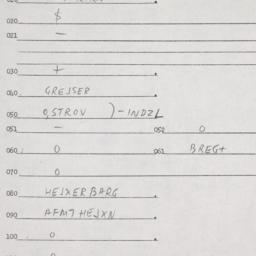 020 $
021 —
030 +
040 GREJSER
050 OSTROV )-INDZL
051 — 052 0
060 0 061 BREG+
070 0
080 HEJXERBARG
090 AFMTHEJXN
100 0